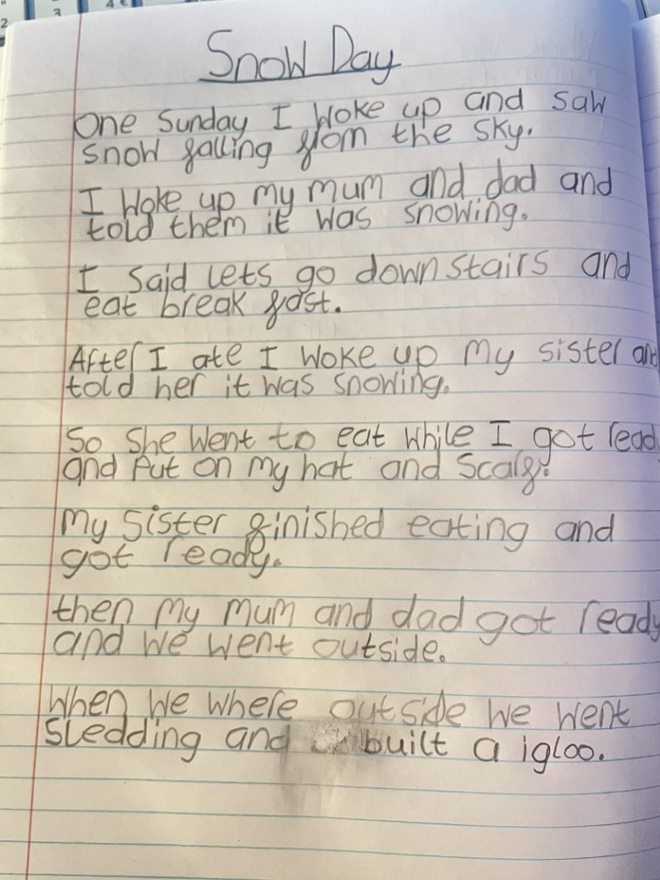 Snow Day
One Sunday I woke up and saw
snow falling from the sky.
I woke up my mum and dad and
told them it was snowing.
I said lets go downstairs and
eat break fast.
After I ate I woke up my sister and
told her it was snowing.
So she went to eat while I got read
and put on my hat and scarf.
My sister finished eating and
got ready.
then my mum and dad got ready
and we went outside.
When we where outside we went
sledding and built a igloo.